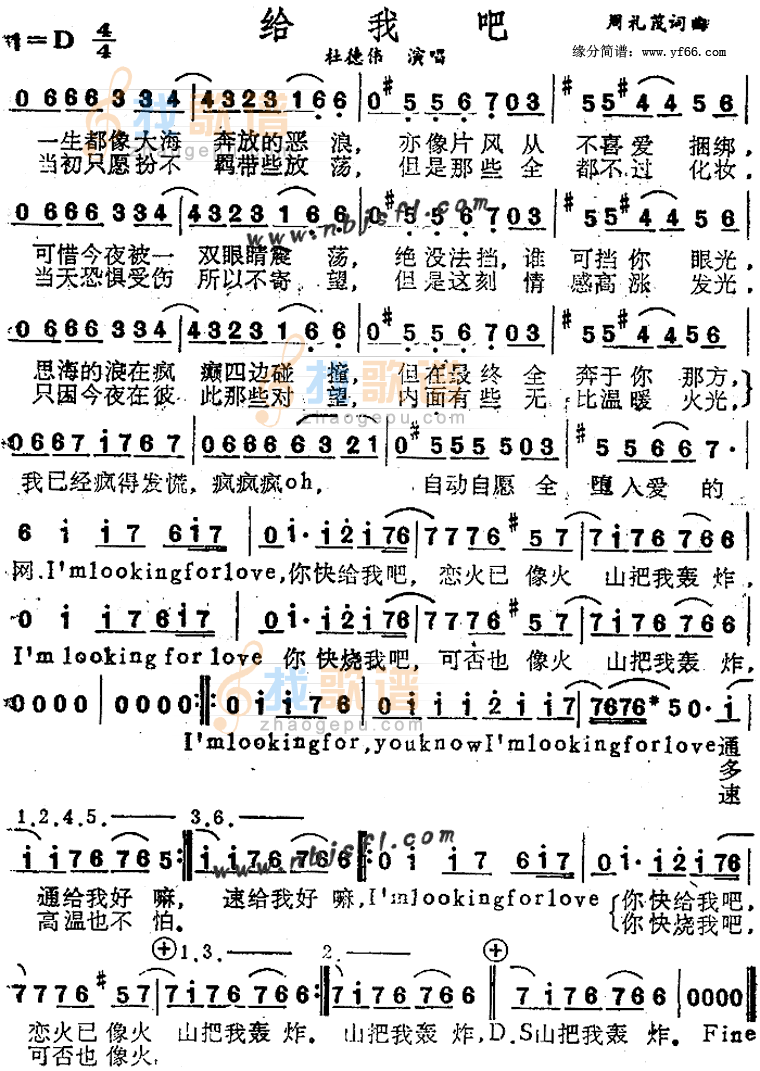 1=D 4/4 给 我 吧 周礼茂词曲
杜德伟 演唱 缘分简谱：www.yf66.com
0 6 6 6 3 3 4 | 4 3 2 3 1 6 6 | 0 #5 5 6 7 0 3 | #5 5 #4 4 5 6 |
一生都像大海 奔放的恶 浪， 亦像片风从 不喜爱 捆绑，
当初只愿扮不 羁带些放 荡， 但是那些全 都不过 化妆，
0 6 6 6 3 3 4 | 4 3 2 3 1 6 6 | 0 #5 5 6 7 0 3 | #5 5 #4 4 5 6 |
www.nbjsfl.com
可惜今夜被一 双眼睛震 荡， 绝没法挡，谁 可挡你 眼光，
当天恐惧受伤 所以不寄 望， 但是这刻情 感高涨 发光，
0 6 6 6 3 3 4 | 4 3 2 3 1 6 6 | 0 #5 5 6 7 0 3 | #5 5 #4 4 5 6 |
思海的浪在疯 癫四边碰 撞， 但在最终全 奔于你 那方，
只因今夜在彼 此那些对 望， 内面有些无 比温暖 火光，
找歌谱 zhaogepu.com
0 6 6 7 i 7 6 7 | 0 6 6 6 6 6 3 2 1 | 0 #5 5 5 5 0 3 | #5 5 6 6 7 · |
我已经疯得发慌，疯疯疯oh， 自动自愿全 堕入爱的
6 i i 7 6 i 7 | 0 i · i 2 i 7 6 | 7 7 7 6 #5 7 | 7 i 7 6 7 6 6 |
网.I'mlookingforlove,你快给我吧，恋火已像火 山把我轰炸，
0 i i 7 6 i 7 | 0 i · i 2 i 7 6 | 7 7 7 6 #5 7 | 7 i 7 6 7 6 6 |
I'm looking for love 你快烧我吧，可否也像火 山把我轰炸，
0 0 0 0 | 0 0 0 0 :‖: 0 i i i 7 6 | 0 i i i 2 i i 7 | 7 6 7 6 * 5 0 · i |
找歌谱 zhaogepu.com
I'mlookingfor,youknowI'mlookingforlove通
多
速
1.2.4.5. 3.6.
www.nbjsfl.com
i i 7 6 7 6 5 :‖ i i 7 6 7 6 6 :‖: 0 i i 7 6 i 7 | 0 i · i 2 i 7 6 |
通给我好 嘛， 速给我好嘛,I'mlookingforlove 你快给我吧，
高温也不 怕. 你快烧我吧，
1.3. 2.
7 7 7 6 #5 7 | 7 i 7 6 7 6 6 :‖ 7 i 7 6 7 6 6 ‖ 7 i 7 6 7 6 6 | 0 0 0 0 ‖
恋火已像火 山把我轰 炸。山把我轰 炸,D.S山把我轰 炸。Fine
可否也像火.